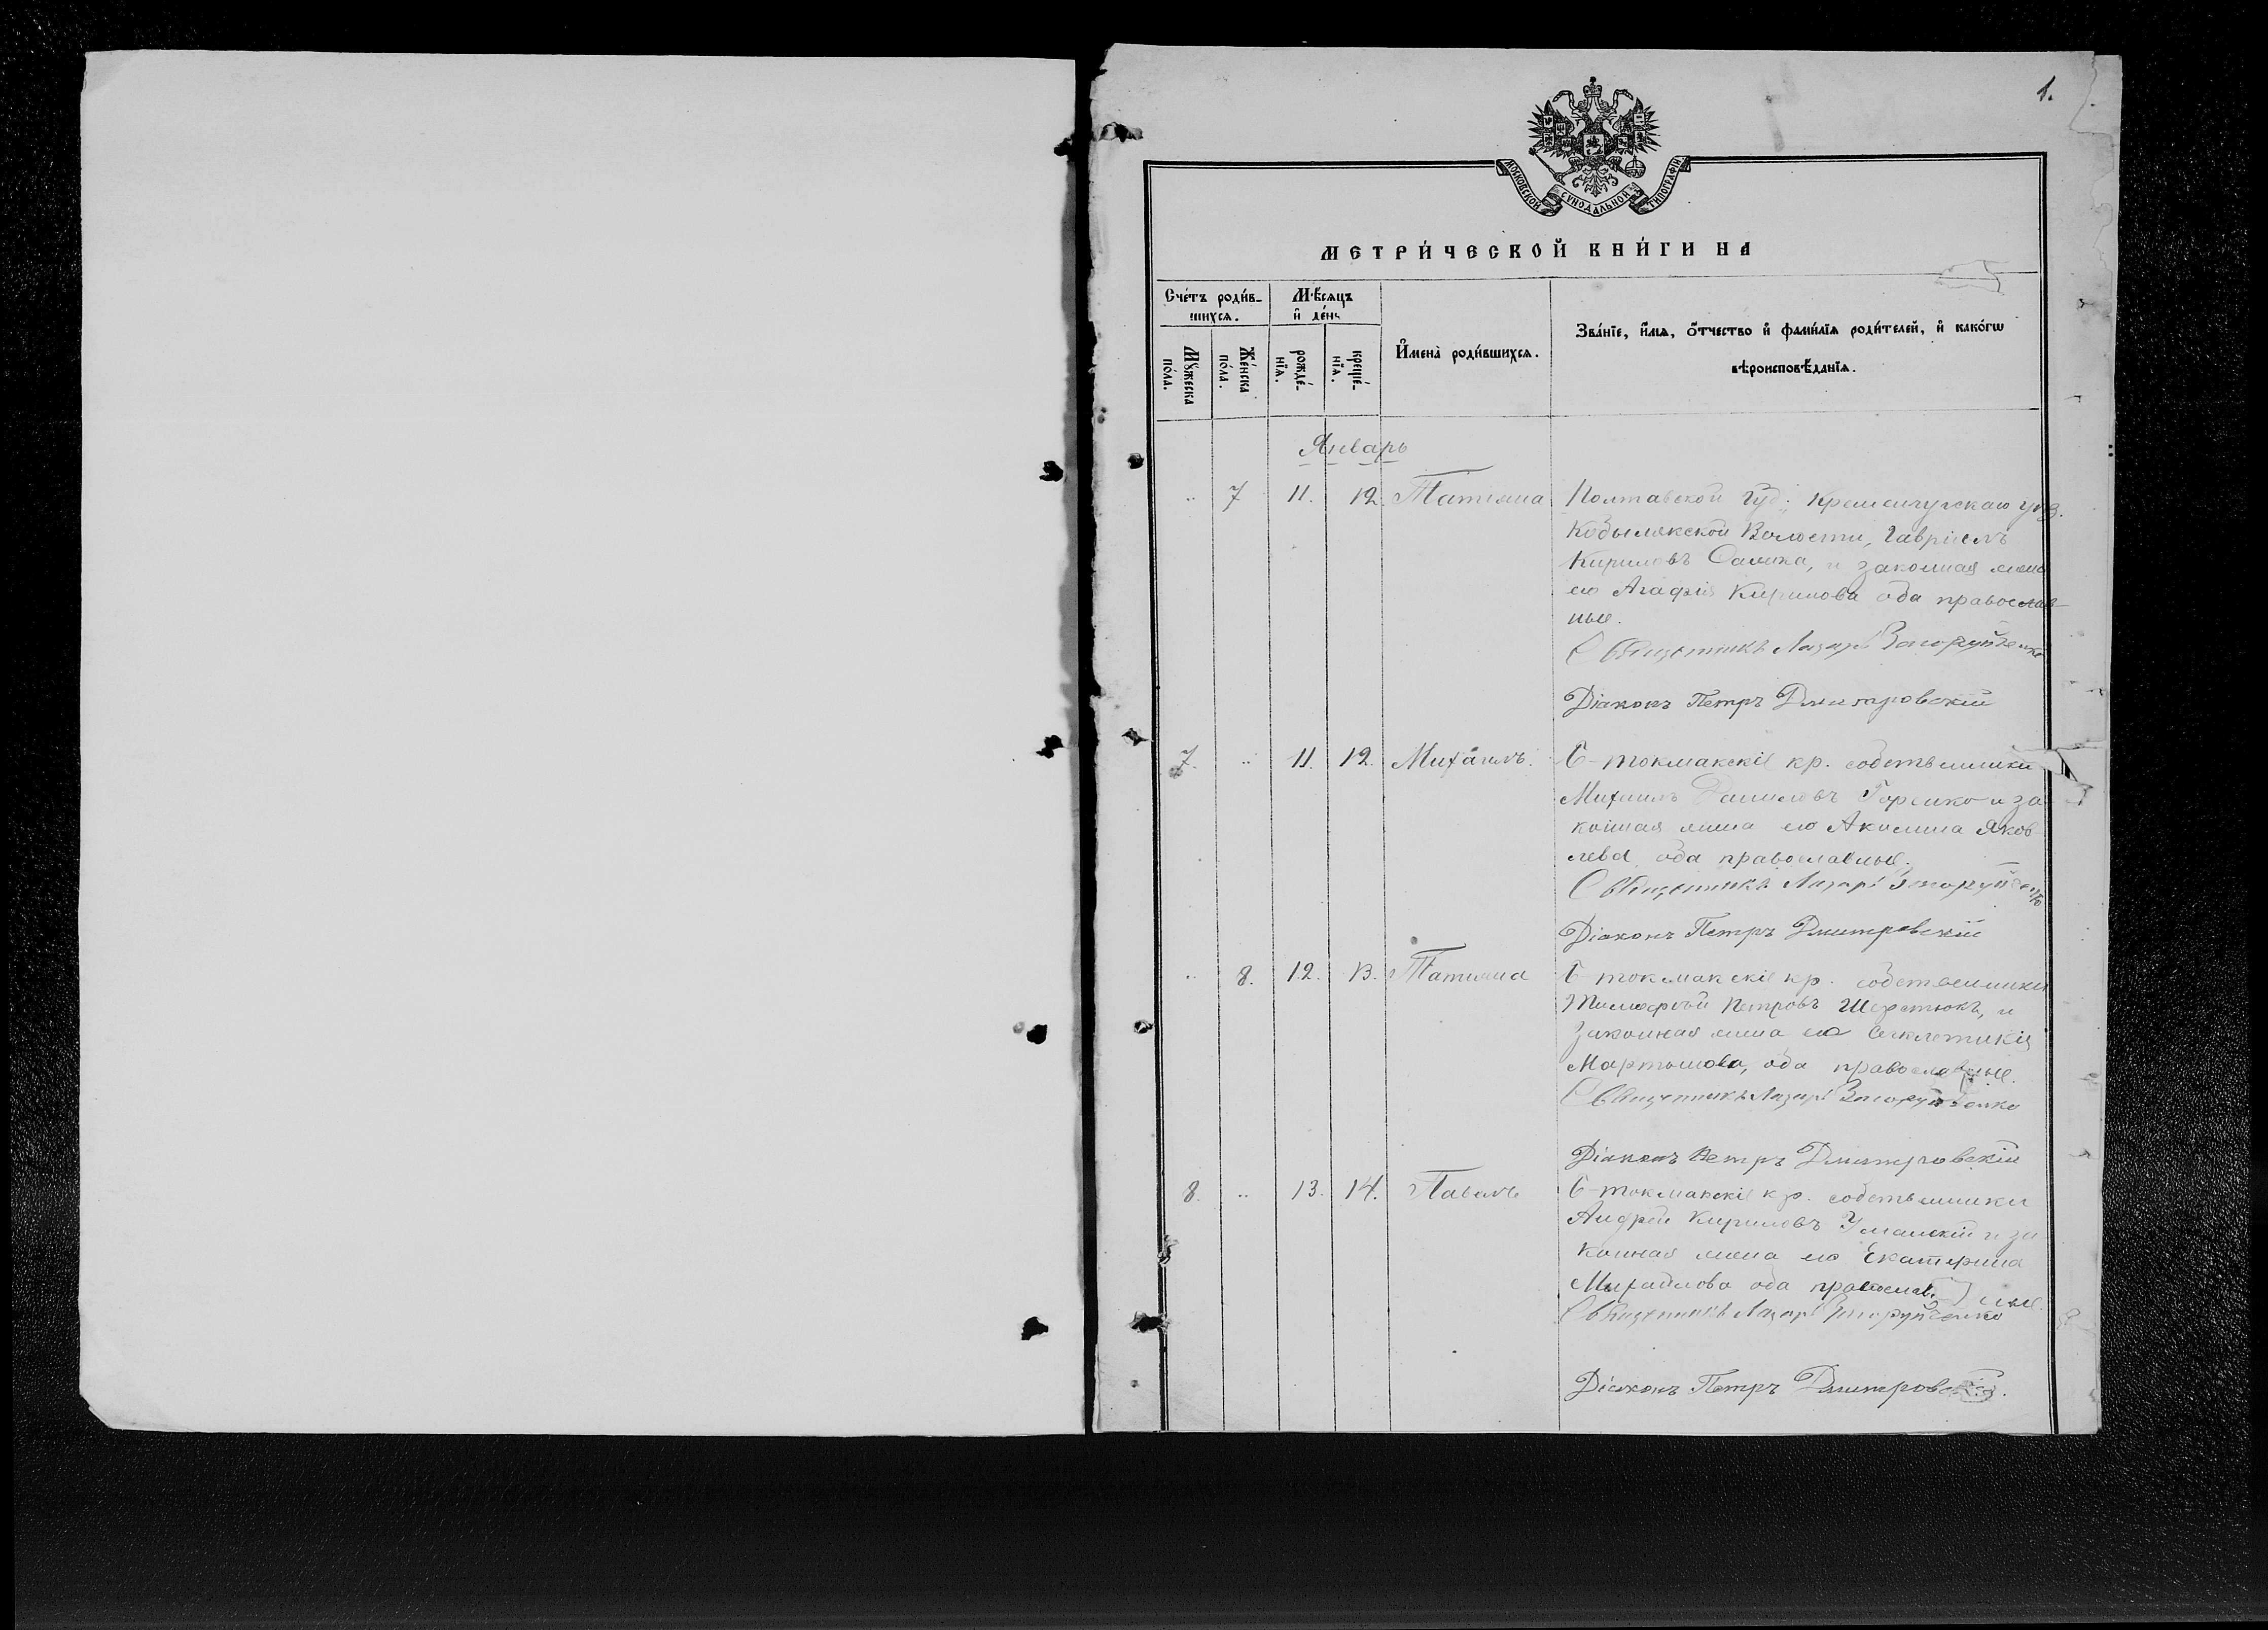 1.
МОСКОВСКОЙ СѴНОДАЛЬНОЙ ТИПОГРАФІИ
МЕТРИ́ЧЕСКОЙ КНИ́ГИ НА
Счéтъ роди́в-
шихсѧ.
Мѣ́сѧцъ
и҆ дéнь
И҆менà роди́вшихсѧ.
Звáнїе, и҆́мѧ, ѻ҆́тчество и҆ фами́лїѧ роди́телей, и҆ какóгѡ
вѣроисповѣ́данїѧ.
Мꙋ́жеска
пóла.
Же́нска
пóла.
рожде́-
нїѧ.
креще́-
нїѧ.
Январь
.. 7 11. 12. Татіяна Полтавской губ; Кременчугскаго уѣз.
Кобылякской Волости, Гавріилъ
Кириловъ, и законная жена
его Агафія Кирилова оба православ-
ные.
Священникъ Лазарь Загоруйченко
Діаконъ Петръ Дмитровскій
7. .. 11. 12. Михаилъ. Б-токмакскіе кр. собственники
Михаилъ Даниловъ Горенко и за
конная жена его Акилина Яков
лева, оба православные.
Священникъ Лазарь Загоруйченко
Діаконъ Петръ Дмитровскій
.. 8. 12. 13. Татіяна Б-токмакскіе кр. собственники
Тимофей Петровъ Шерстюкъ, и
законная жена его Синклетикія
Мартынова, оба православные.
Священникъ Лазарь Загоруйченко
Діаконъ Петръ Дмитровскій
8. .. 13. 14. Павелъ Б-токмакскіе кр. собственники
Андрей Кириловъ Уманскій и за
конная жена его Екатерина
Михайлова оба православные.
Священникъ Лазарь Загоруйченко
Діаконъ Петръ Дмитровскій.